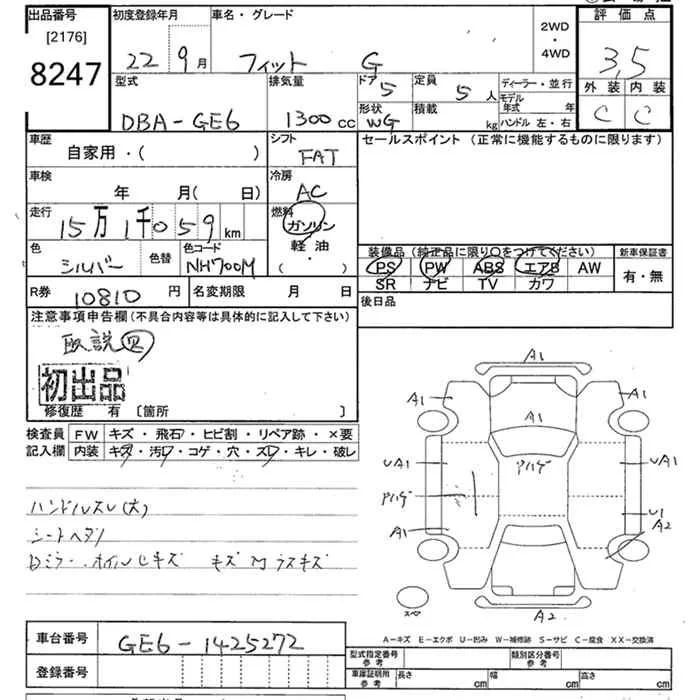 出品番号 初度登録年月 車名・グレード 2WD・4WD 評価点
[2176] 22 9月 フィット G 3.5
8247 型式 排気量 ドア 5 定員 5人 ディーラー・並行 外装 内装
DBA-GE6 1300cc 形状 WG 積載 kg モデル年式 年 C C
ハンドル 左・右
車歴 シフト セールスポイント (正常に機能するものに限ります)
自家用・( ) FAT
車検 年 月( 日) 冷房 AC
走行 15万1千059km 燃料 ガソリン
軽油
・( )
色 シルバー 色替 色コード NH700M
装備品 (純正品に限り○をつけてください) 新車保証書
PS PW ABS エアB AW 有・無
SR ナビ TV カワ
R券 10810円 名変期限 月 日 後日品
注意事項申告欄(不具合内容等は具体的に記入して下さい)
取説
初出品
修復歴 有 [箇所 ]
検査員 FW キズ・飛石・ヒビ割・リペア跡・×要
記入欄 内装 キズ・汚レ・コゲ・穴・スレ・キレ・破レ
ハンドルスレ(大)
シートヘタリ
A1
A1 A1 A1
UA1 アハゲ UA1
アハゲ U1
A1 A2
スペ A2
車台番号 GE6-1425272
A-キズ E-エクボ U-凹み W-補修跡 S-サビ C-腐食 XX-交換済
登録番号
型式指定番号 参考 類別区分番号 参考
車庫証明用 参考 長さ cm 幅 cm 高さ cm